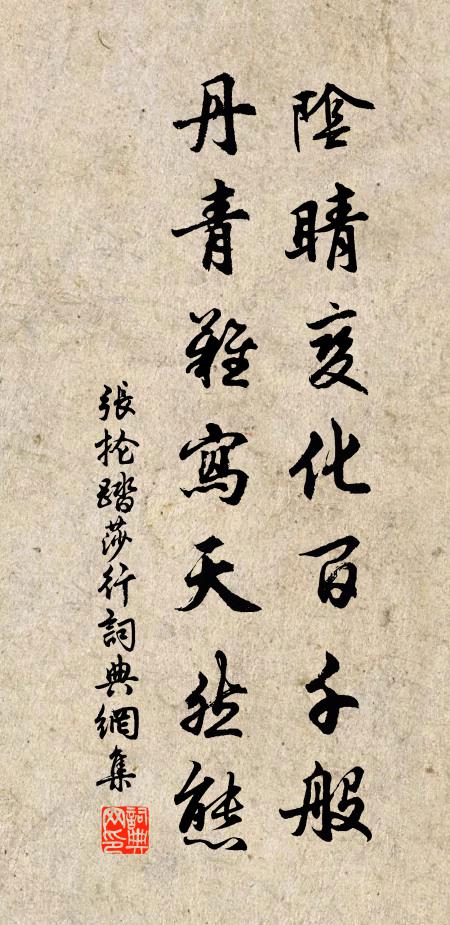 陰晴变化百千般
丹青難寫天然態
張掄踏莎行詞典網集
詞典网印